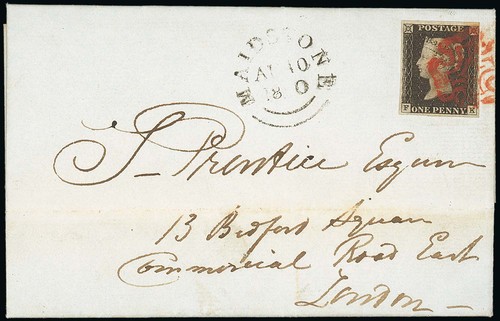 MAIDSTONE
AU 10
18 0
POSTAGE
ONE PENNY
S Prentice Esquire
13 Bedford Square
Commercial Road East
London